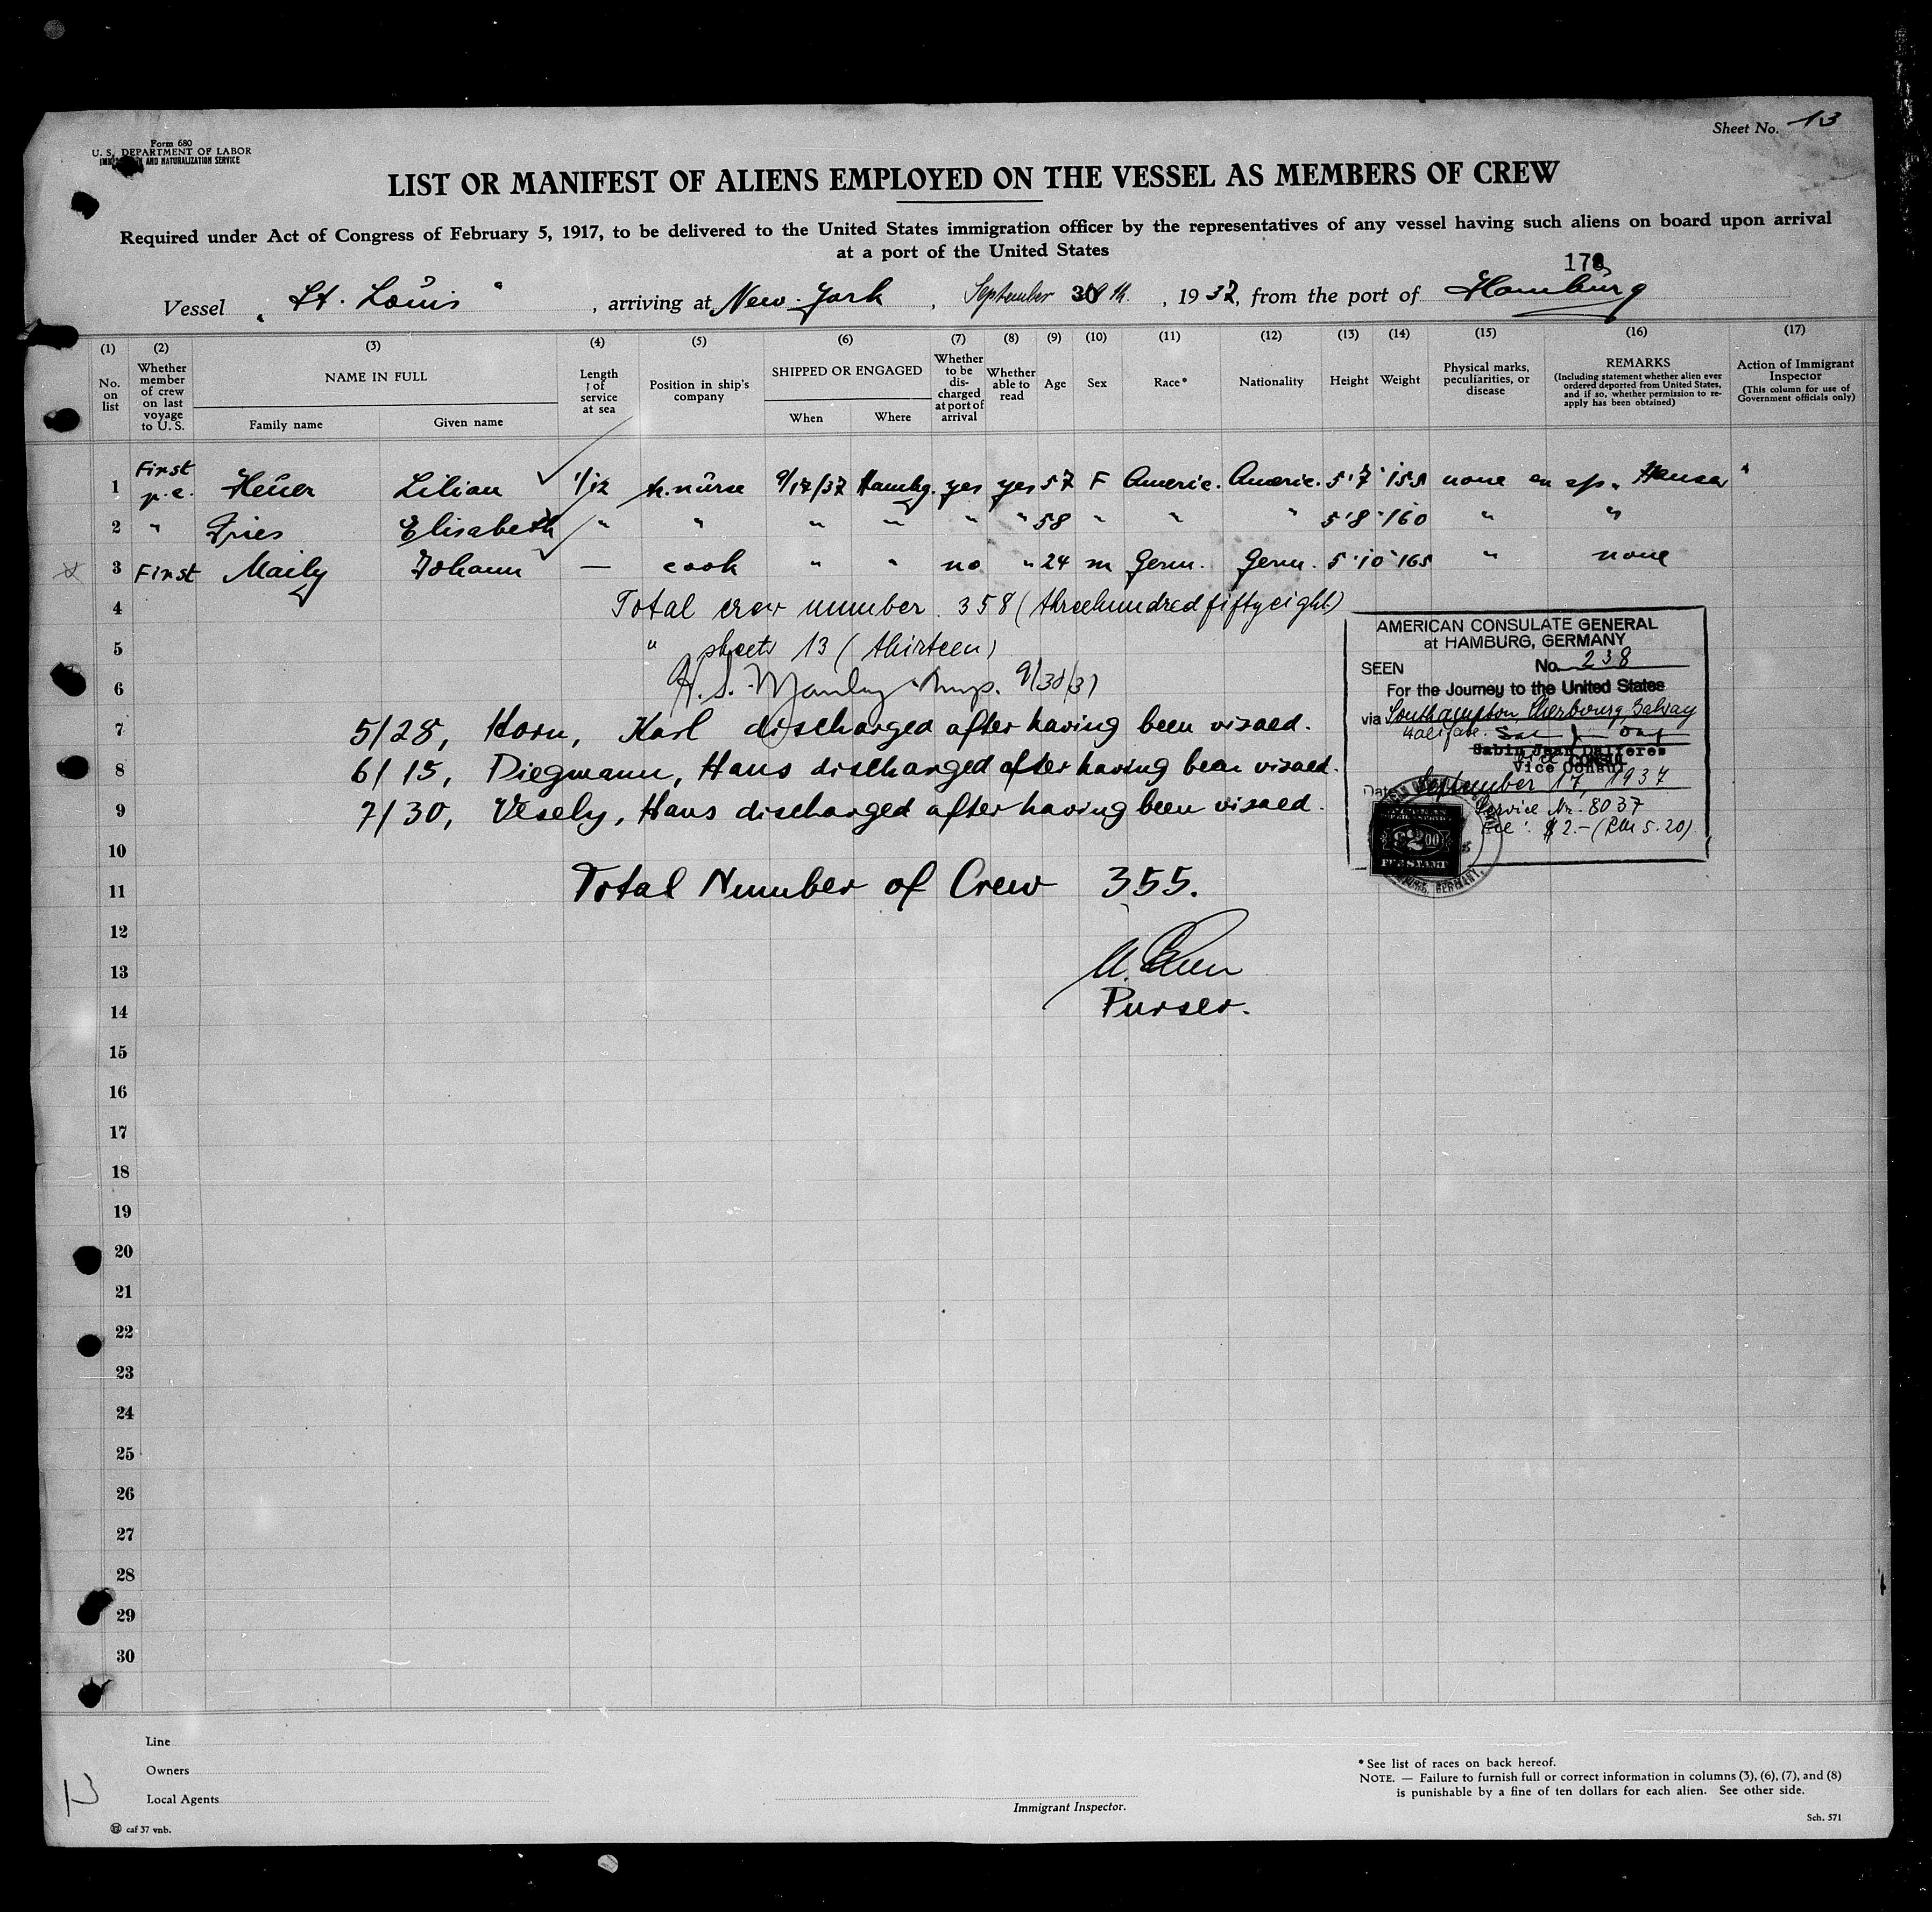 Sheet No. 13
Form 680
U. S. DEPARTMENT OF LABOR
IMMIGRATION AND NATURALIZATION SERVICE
LIST OR MANIFEST OF ALIENS EMPLOYED ON THE VESSEL AS MEMBERS OF CREW
Required under Act of Congress of February 5, 1917, to be delivered to the United States immigration officer by the representatives of any vessel having such aliens on board upon arrival
at a port of the United States
178
Vessel "St. Louis", arriving at New-York, September 30th., 1937, from the port of Hamburg
(1) No. on list
(2) Whether member of crew on last voyage to U. S.
(3) NAME IN FULL Family name Given name
(4) Length of service at sea
(5) Position in ship's company
(6) SHIPPED OR ENGAGED When Where
(7) Whether to be discharged at port of arrival
(8) Whether able to read
(9) Age
(10) Sex
(11) Race*
(12) Nationality
(13) Height
(14) Weight
(15) Physical marks, peculiarities, or disease
(16) REMARKS (Including statement whether alien ever ordered deported from United States, and if so, whether permission to re-apply has been obtained)
(17) Action of Immigrant Inspector (This column for use of Government officials only)
1 First p.c. Heuer Lilian 1/12 nurse 9/17/37 Hambg. yes yes 57 F Americ. Americ. 5'7" 155 none
2 " Dries Elisabeth " " " " " " 58 " " " 5'8" 160 " "
3 First Maily Johann — cook " " no " 24 m Germ. Germ. 5'10" 165 " none
4 Total crew number 358 (threehundredfiftyeight)
5 " sheets 13 (thirteen)
6 H. S. Manley Insp. 9/30/37
7 5/28, Horn, Karl discharged after having been visaed.
8 6/15, Diegmann, Hans discharged after having been visaed.
9 7/30, Vesely, Hans discharged after having been visaed.
10
11 Total Number of Crew 355.
12
13
14 Purser.
15
16
17
18
19
20
21
22
23
24
25
26
27
28
29
30
AMERICAN CONSULATE GENERAL
at HAMBURG, GERMANY
SEEN No. 238
For the Journey to the United States
via Southampton, Cherbourg, Galway
Halifax.
Sabin Jean Dalferes
Vice Consul
Date September 17, 1937
Service Nr. 8037
Fee: $2.— (RM 5.20)
$2.00
FEE STAMP
Line
Owners
Local Agents
Immigrant Inspector.
* See list of races on back hereof.
NOTE. — Failure to furnish full or correct information in columns (3), (6), (7), and (8)
is punishable by a fine of ten dollars for each alien. See other side.
Sch. 571
13
caf 37 vnb.